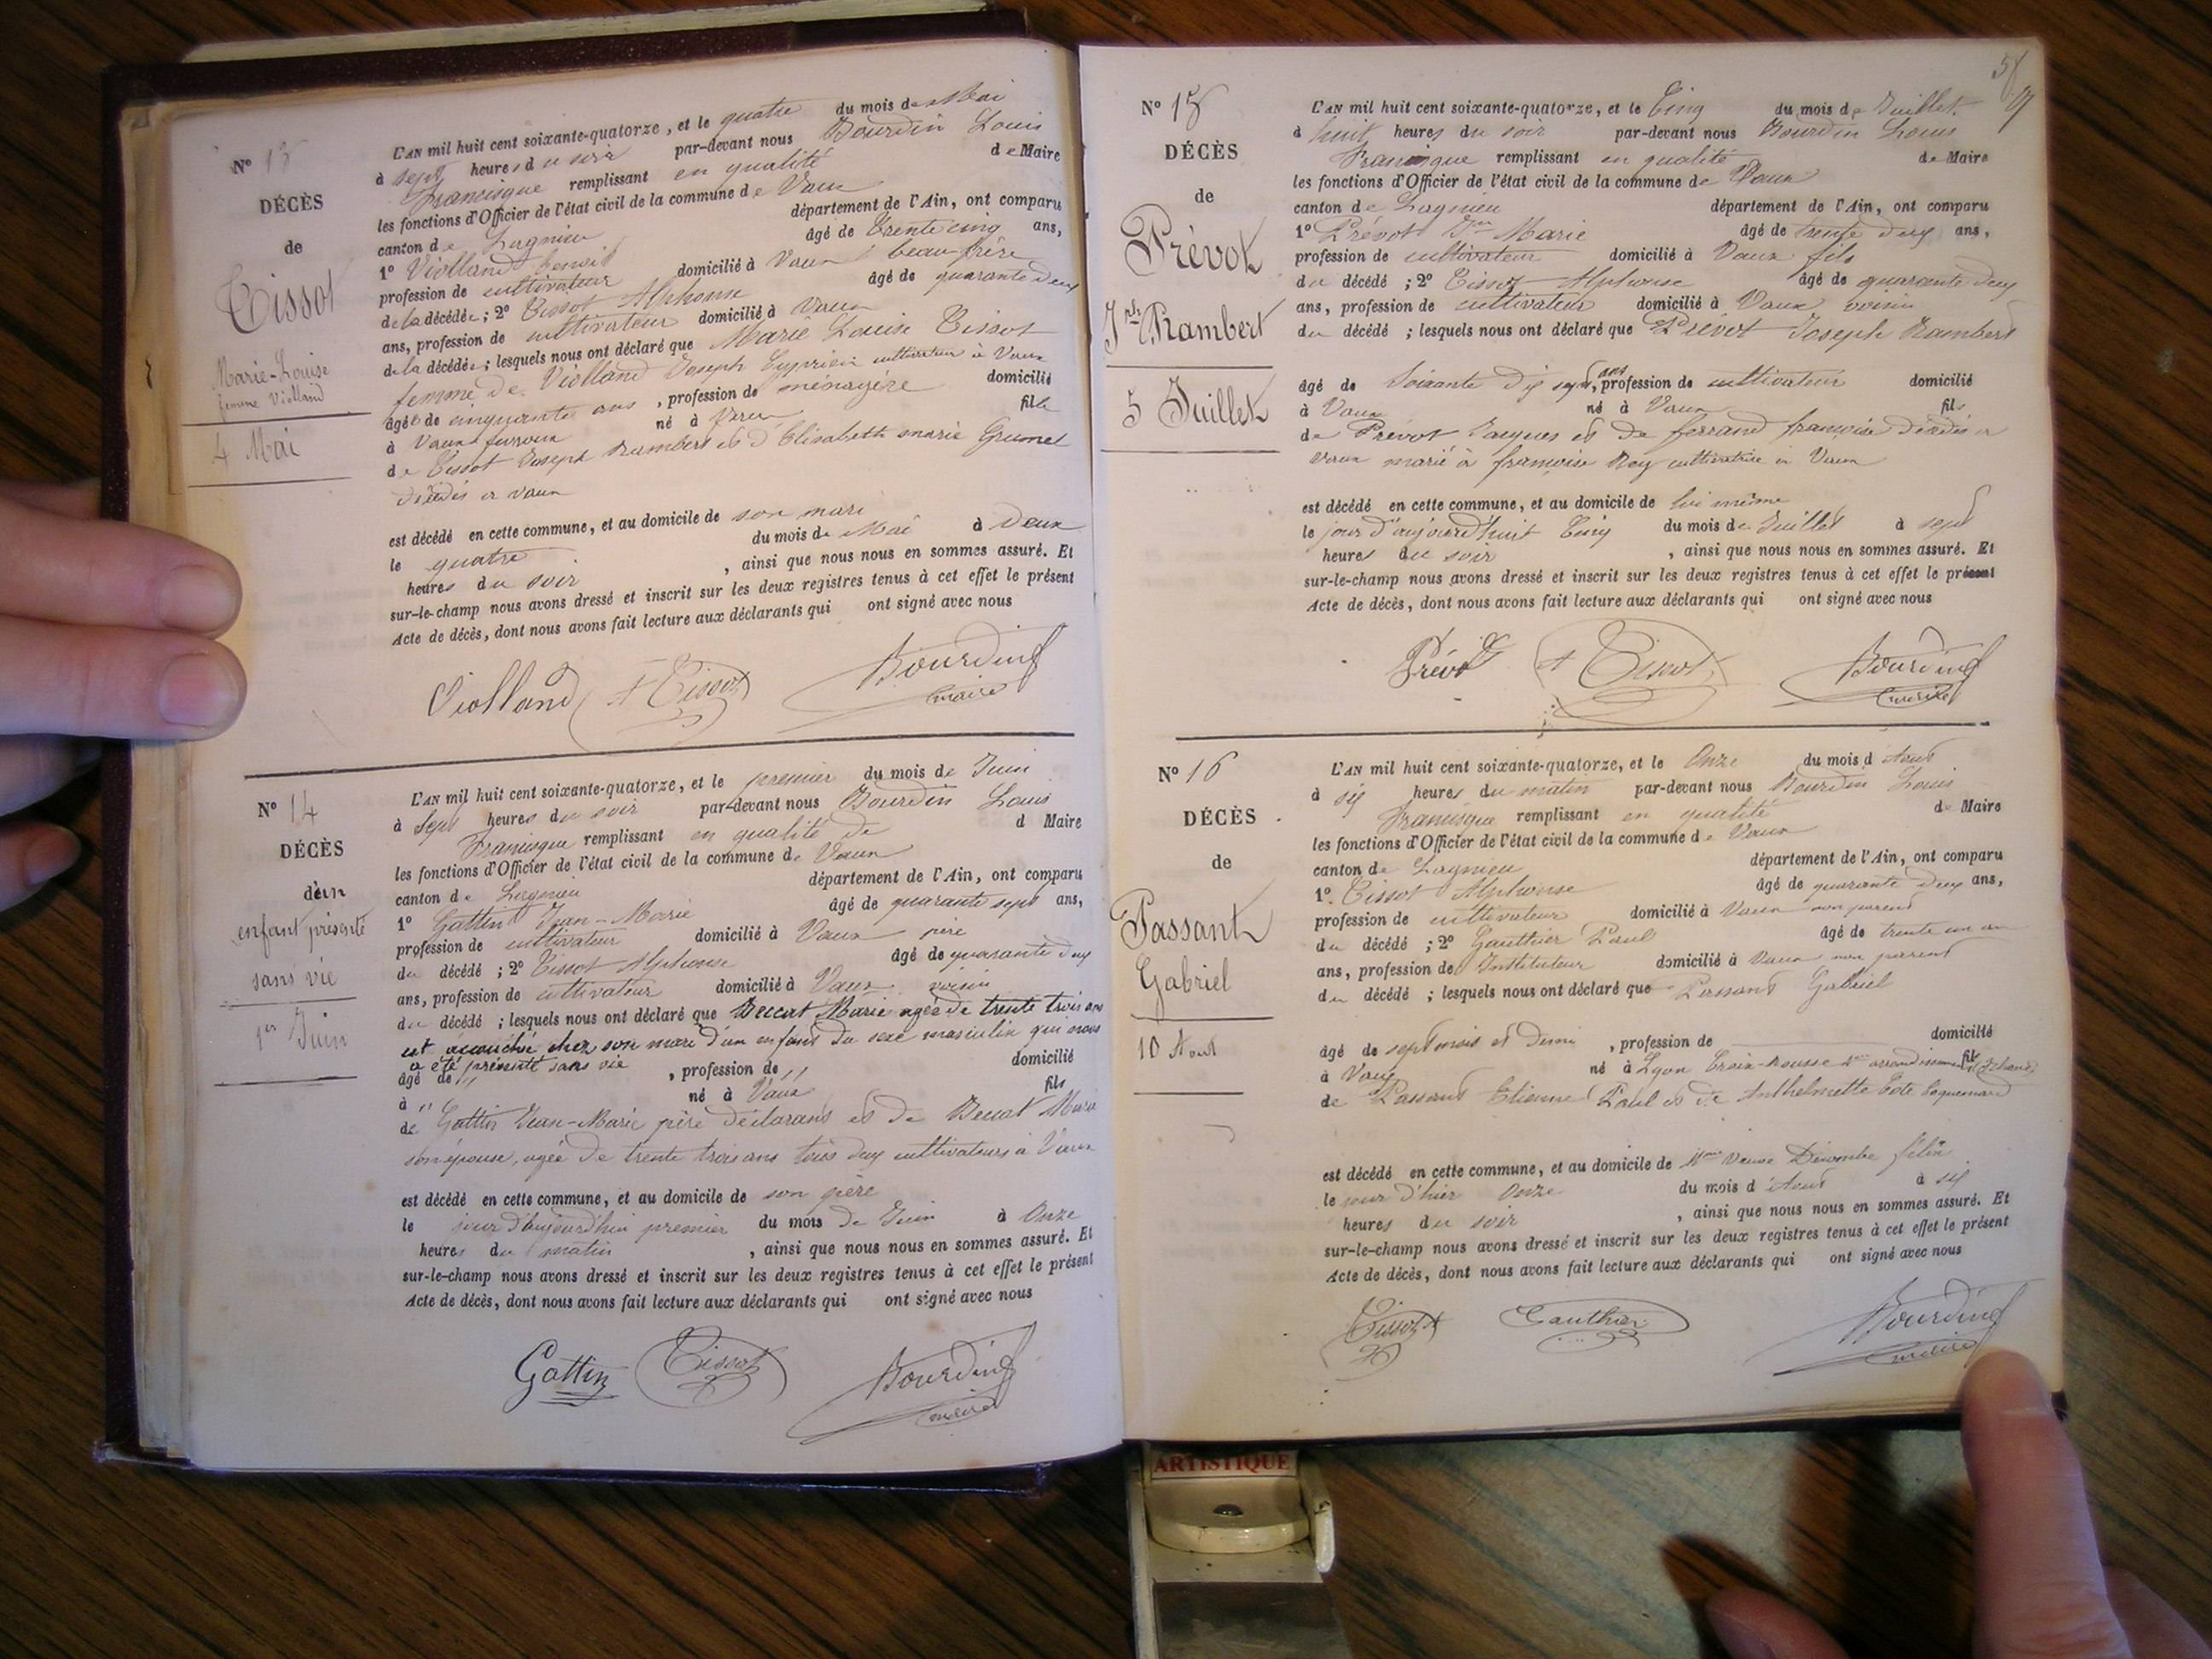 N° 13
DÉCÈS
de
Tissot
Marie-Louise
femme Violland
4 Mai
L'AN mil huit cent soixante-quatorze, et le quatre du mois de Mai
à sept heures du soir par-devant nous Bourdin Louis
Francisque remplissant en qualité de Maire
les fonctions d'Officier de l'état civil de la commune de Vaux
canton de Lagnieu département de l'Ain, ont comparu
1° Violland Benoit âgé de trente cinq ans,
profession de cultivateur domicilié à Vaux beau-frère
de la décédée; 2° Tissot Alphonse âgé de quarante deux
ans, profession de cultivateur domicilié à Vaux
de la décédée; lesquels nous ont déclaré que Marie Louise Tissot
femme de Violland Joseph Cyprien cultivateur à Vaux
âgée de cinquante ans, profession de ménagère domicilié
à Vaux né à Vaux fille
de Tissot Joseph Rambert et d'Elisabeth marie Grumet
décédés à vaux
est décédé en cette commune, et au domicile de son mari
le quatre du mois de Mai à Deux
heures du soir, ainsi que nous nous en sommes assuré. Et
sur-le-champ nous avons dressé et inscrit sur les deux registres tenus à cet effet le présent
Acte de décès, dont nous avons fait lecture aux déclarants qui ont signé avec nous
Violland A Tissot Bourdin
maire
N° 14
DÉCÈS
d'un
enfant présenté
sans vie
1er Juin
L'AN mil huit cent soixante-quatorze, et le premier du mois de Juin
à Sept heures du soir par-devant nous Bourdin Louis
Francisque remplissant en qualité de d Maire
les fonctions d'Officier de l'état civil de la commune de Vaux
canton de Lagnieu département de l'Ain, ont comparu
1° Gattin Jean-Marie âgé de quarante sept ans,
profession de cultivateur domicilié à Vaux père
du décédé; 2° Tissot Alphonse âgé de quarante deux
ans, profession de cultivateur domicilié à Vaux voisin
du décédé; lesquels nous ont déclaré que Marie agée de trente trois ans
est accouchée chez son mari d'un enfant du sexe masculin qui nous
a été présenté sans vie
âgé de //, profession de // domicilié
à // né à Vaux fils
de Gattin Jean-Marie père déclarant et de Marie
son épouse, agée de trente trois ans tous deux cultivateurs à Vaux
est décédé en cette commune, et au domicile de son père
le jour d'aujourd'hui premier du mois de Juin à Onze
heures du matin, ainsi que nous nous en sommes assuré. Et
sur-le-champ nous avons dressé et inscrit sur les deux registres tenus à cet effet le présent
Acte de décès, dont nous avons fait lecture aux déclarants qui ont signé avec nous
Gattin Tissot Bourdin
maire
N° 15
DÉCÈS
de
Prévot
Jph Rambert
5 Juillet
L'AN mil huit cent soixante-quatorze, et le Cinq du mois de Juillet
à huit heures du soir par-devant nous Bourdin Louis
Francisque remplissant en qualité de Maire
les fonctions d'Officier de l'état civil de la commune de Vaux
canton de Lagnieu département de l'Ain, ont comparu
1° Prévot Marie âgé de trente deux ans,
profession de cultivateur domicilié à Vaux fils
du décédé; 2° Tissot Alphonse âgé de quarante deux
ans, profession de cultivateur domicilié à Vaux voisin
du décédé; lesquels nous ont déclaré que Prévot Joseph Rambert
âgé de Soixante dix sept ans, profession de cultivateur domicilié
à Vaux né à Vaux fils
de Prévot Jacques et de ferrand françoise décédés à
vaux marié à françoise Roy cultivatrice à Vaux
est décédé en cette commune, et au domicile de lui même
le jour d'aujourd'huit Cinq du mois de Juillet à sept
heures du soir, ainsi que nous nous en sommes assuré. Et
sur-le-champ nous avons dressé et inscrit sur les deux registres tenus à cet effet le présent
Acte de décès, dont nous avons fait lecture aux déclarants qui ont signé avec nous
Prévot A Tissot Bourdin
maire
N° 16
DÉCÈS
de
Passant
Gabriel
10 Aout
L'AN mil huit cent soixante-quatorze, et le Onze du mois d'Aout
à six heures du matin par-devant nous Bourdin Louis
Francisque remplissant en qualité de Maire
les fonctions d'Officier de l'état civil de la commune de Vaux
canton de Lagnieu département de l'Ain, ont comparu
1°. Tissot Alphonse âgé de quarante deux ans,
profession de cultivateur domicilié à Vaux non parent
du décédé; 2° Gauthier Paul âgé de trente un an
ans, profession de Instituteur domicilié à Vaux non parent
du décédé; lesquels nous ont déclaré que Passant Gabriel
âgé de sept mois et demi, profession de domicilié
à Vaux né à Lyon Croix-Rousse arrondissement fils
de Passant Etienne Paul et de Anthelmette
est décédé en cette commune, et au domicile de Mme Veuve Décombe
le jour d'hier Onze du mois d'Aout à six
heures du soir, ainsi que nous nous en sommes assuré. Et
sur-le-champ nous avons dressé et inscrit sur les deux registres tenus à cet effet le présent
Acte de décès, dont nous avons fait lecture aux déclarants qui ont signé avec nous
Tissot A Gauthier Bourdin
maire
ARTISTIQUE